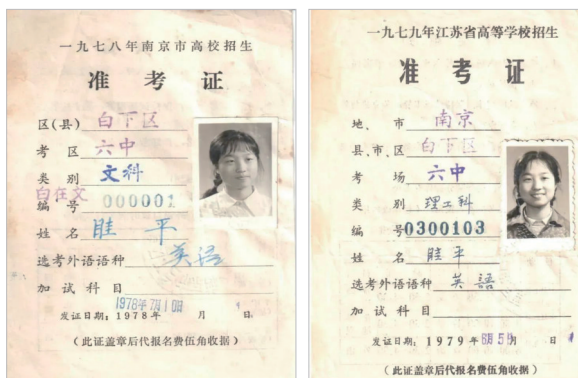 一九七八年南京市高校招生
准考证
区(县) 白下区
考区 六中
类别 文科
白在文
编号 000001
姓名 眭平
选考外语语种 英语
加试科目
1978年7月10日
发证日期：1978年 月 日
(此证盖章后代报名费伍角收据)
一九七九年江苏省高等学校招生
准考证
地、市 南京
县、市、区 白下区
考场 六中
类别 理工科
编号 0300103
姓名 眭平
选考外语语种 英語
加试科目
发证日期：1979年6月5日 月 日
(此证盖章后代报名费伍角收据)